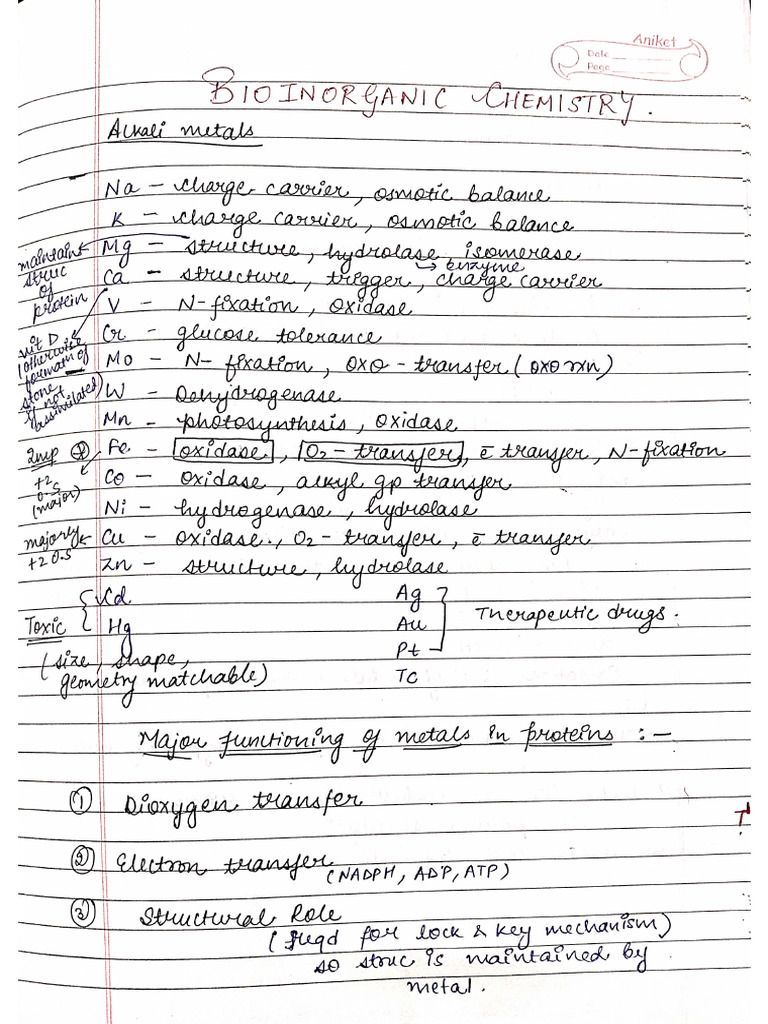 Aniket
Date
Page
BIOINORGANIC CHEMISTRY.
Alkali metals
Na – charge carrier, osmotic balance
K – charge carrier, osmotic balance
Mg – structure, hydrolase, isomerase
→ enzyme
Ca – structure, trigger, charge carrier
V – N-fixation, oxidase
Cr – glucose tolerance
Mo – N-fixation, oxo-transfer (oxo rxn)
W – Dehydrogenase
Mn – photosynthesis, oxidase
Fe – oxidase, O2-transfer, ē transfer, N-fixation
Co – oxidase, alkyl gp transfer
Ni – hydrogenase, hydrolase
Cu – oxidase., O2-transfer, ē transfer
Zn – structure, hydrolase
maintaint
struc
of
protein
vit D
(otherwise
formatn of
stone
if not
assimilated)
Imp
+2
O.S
(major)
majorly
+2 O.S
Toxic { Cd
Hg
(size, shape,
geometry matchable)
Ag
Au
Pt
Therapeutic drugs.
TC
Major functioning of metals in proteins :–
① Dioxygen transfer
② Electron transfer
(NADPH, ADP, ATP)
③ Structural Role
(reqd for lock & key mechanism)
so struc is maintained by
metal.